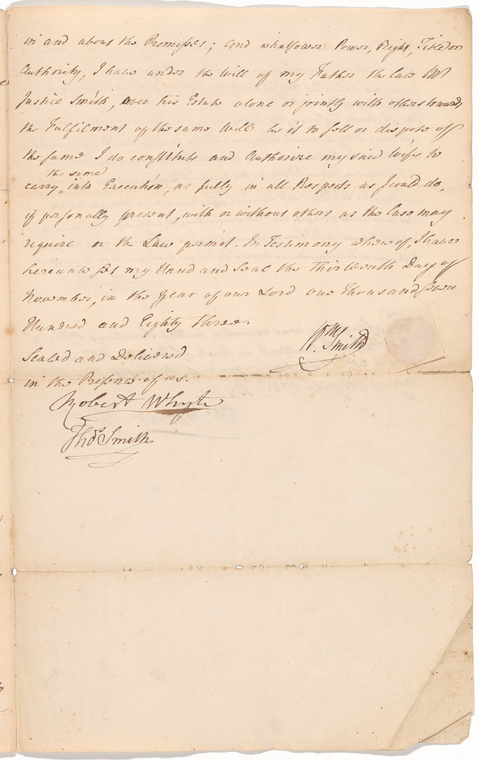 in and about the Premisses; and whatsoever Power, Right, Title or
Authority, I have under the Will of my Father the late Mr
Justice Smith, over his Estate alone or jointly with others towards
the Fulfilment of the same Will be it to sell or dispose of
the same I do constitute and Authorize my said Wife to
carry, the same into Execution, as fully in all Respects as I could do,
if personally present, with or without others as the Case may
require or the Law permit. In Testimony whereof, I have
hereunto set my Hand and Seal the Thirteenth Day of
November, in the Year of our Lord one Thousand Seven
Hundred and Eighty three.
Wm Smith
Sealed and Delivered
in the Presence of us.
Robert Whyte
Thos Smith